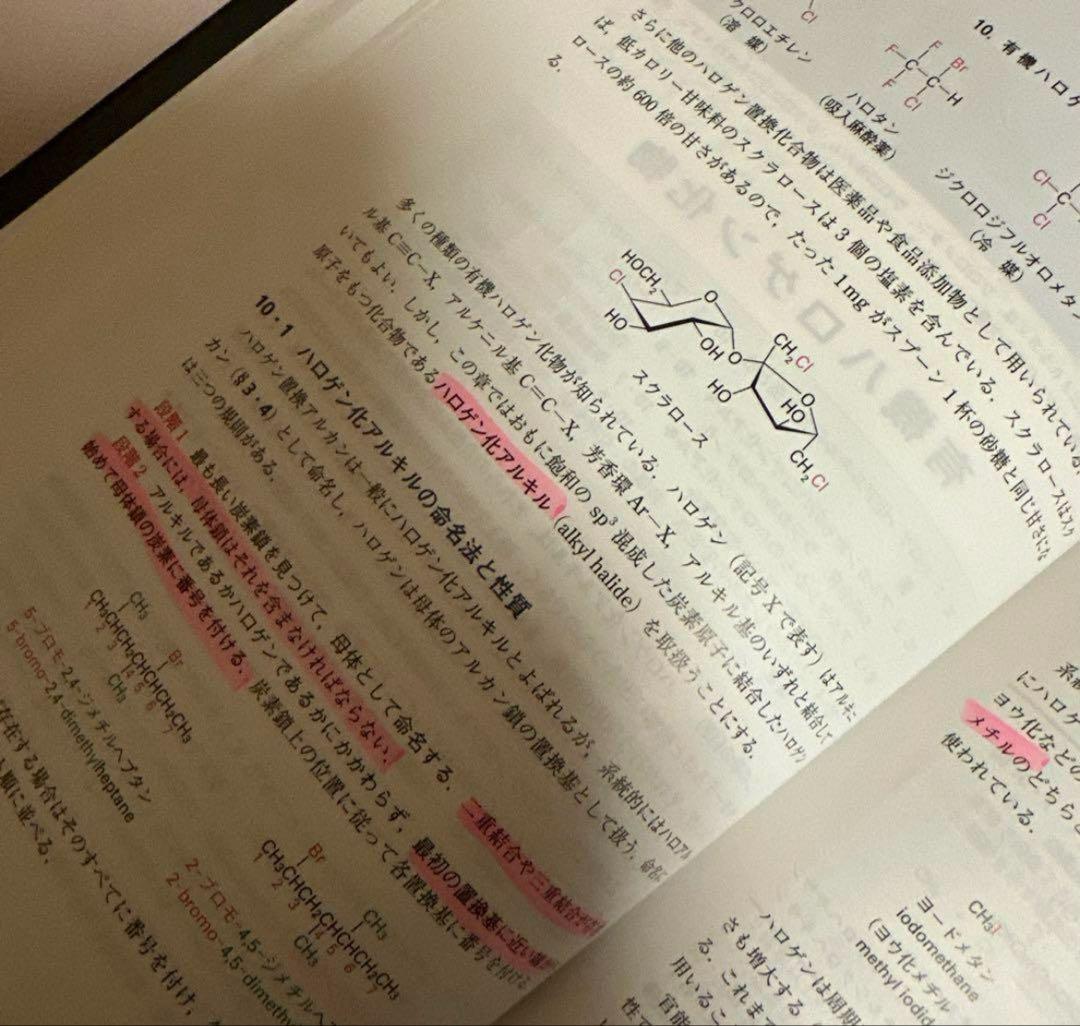 10. 有機ハロゲ
クロロエチレン
(溶 媒)
ハロタン
(吸入麻酔薬)
ジクロロジフルオロメタン
(冷 媒)
さらに他のハロゲン置換化合物は医薬品や食品添加物として用いられている.
ば, 低カロリー甘味料のスクラロースは3個の塩素を含んでいる. スクラロースはスク
ロースの約600倍の甘さがあるので, たった1mgがスプーン1杯の砂糖と同じ甘さにな
る.
HOCH₂
Cl
HO
O
OH
O
CH₂Cl
O
HO
HO
CH₂Cl
スクラロース
多くの種類の有機ハロゲン化物が知られている. ハロゲン (記号Xで表す) はアルキニ
ル基 C≡C−X, アルケニル基 C=C−X, 芳香環 Ar−X, アルキル基のいずれと結合して
いてもよい. しかし, この章ではおもに飽和の sp³ 混成した炭素原子に結合したハロゲン
原子をもつ化合物であるハロゲン化アルキル (alkyl halide) を取扱うことにする.
10・1 ハロゲン化アルキルの命名法と性質
ハロゲン置換アルカンは一般にハロゲン化アルキルとよばれるが, 系統的にはハロアル
カン (§3・4) として命名し, ハロゲンは母体のアルカン鎖の置換基として扱う. 命名に
は三つの規則がある.
段階1 最も長い炭素鎖を見つけて, 母体として命名する. 二重結合や三重結合が
する場合には, 母体鎖はそれを含まなければならない.
段階2 アルキルであるかハロゲンであるかにかかわらず, 最初の置換基に近い
始めて母体鎖の炭素に番号を付ける. 炭素鎖上の位置に従って各置換基に番号を付ける.
CH₃ Br
CH₃CHCH₂CHCHCH₂CH₃
1 2 3 4 5 6 7
CH₃
5-ブロモ-2,4-ジメチルヘプタン
5-bromo-2,4-dimethylheptane
Br CH₃
CH₃CHCH₂CHCHCH₂CH₃
1 2 3 4 5 6 7
CH₃
2-ブロモ-4,5-ジメチルヘ
2-bromo-4,5-dimeth
存在する場合はそのすべてに番号を付け,
順に並べる.
系統
にハロゲ
ヨウ化などの
メチルのどちらと
使われている.
CH₃I
ヨードメタン
iodomethane
(ヨウ化メチル
methyl iodid
ハロゲンは周期
さも増大する
る. これま
用いるこ
官能
性て